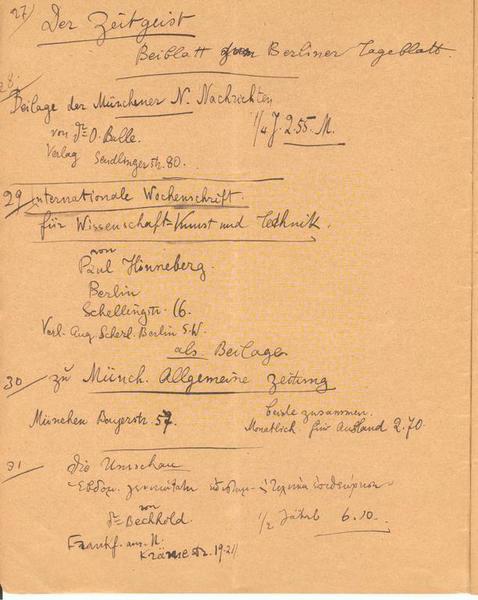 27) Der Zeitgeist
Beiblatt zum Berliner Tageblatt.
28.
Beilage der Münchener N. Nachrichten
von Dr O. Bulle. 1/4 J. 2.55 M.
Verlag Sendlingerstr. 80.
29 Internationale Wochenschrift
für Wissenschaft Kunst und Technik.
von
Paul Hinneberg.
Berlin
Schellingstr. 16.
Verl. Aug. Scherl. Berlin S.W.
als Beilage
30 zu Münch. Allgemeine Zeitung
München Bayerstr. 57. beide zusammen.
Monatlich für Ausland 2.70.
31 Die Umschau
von
Dr Bechhold. 1/2 Jährl 6.10.
Frankf. am M.
Krämestr. 19.21